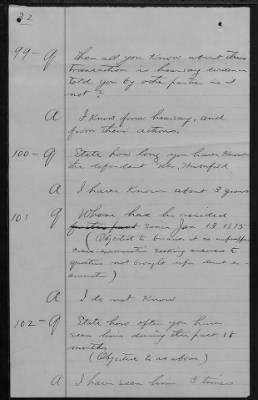 22
99 - Q Then all you know about this
transaction is hearsay evidence
told you by other parties is it
not?
A I know from hearsay, and
from their actions.
100 - Q State how long you have known
the defendant Mr.
A I have known about 3 years
101 Q Where had he resided
since Jan 13. 1875
(Objected to because it is improper
cross-examination seeking answers to
questions not brought up in direct ex-
amination)
A I do not know
102 - Q State how often you have
seen him during the past 18
months
(Objected to as above)
A I have seen him 3 times